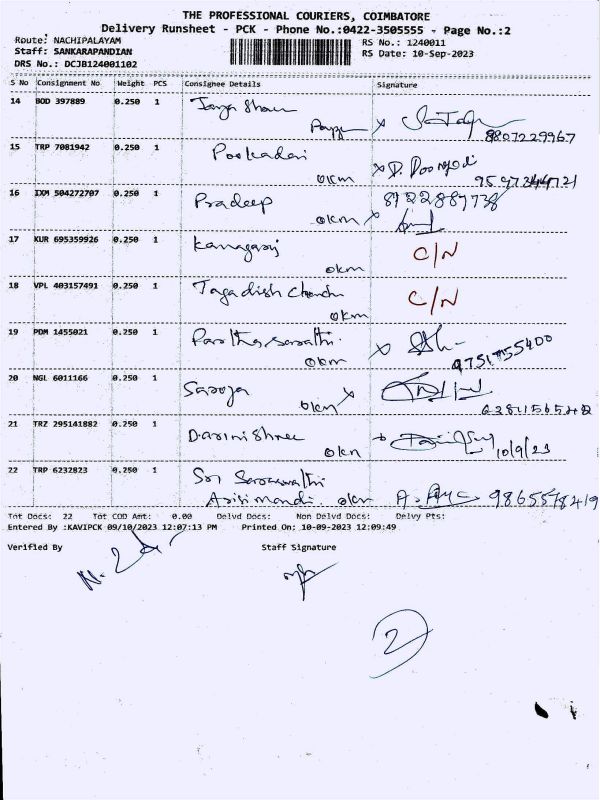 THE PROFESSIONAL COURIERS, COIMBATORE
Delivery Runsheet - PCK - Phone No.:0422-3505555 - Page No.:2
Route: NACHIPALAYAM
RS No.: 1240011
Staff: SANKARAPANDIAN
RS Date: 10-Sep-2023
DRS No.: DCJB124001102
S No Consignment No Weight PCS Consignee Details Signature
14 BOD 397889 0.250 1
8807229967
15 TRP 7081942 0.250 1 Pookadai
okm
16 IXM 504272707 0.250 1 Pradeep 8122887738
okm x
17 KUR 695359926 0.250 1 Kanagaraj C/N
okm
18 VPL 403157491 0.250 1 Jagadish Chandru C/N
okm
19 PDM 1455021 0.250 1 Parthasarathi.
okm x
20 NGL 6011166 0.250 1 Saroja
okm x
21 TRZ 295141882 0.250 1 Darini Shree
okm 10/9/23
22 TRP 6232823 0.250 1 Sri Saraswathi
Arisimandi. okm 9865578419
Tot Docs: 22 Tot COD Amt: 0.00 Delvd Docs: Non Delvd Docs: Delvy Pts:
Entered By :KAVIPCK 09/10/2023 12:07:13 PM Printed On: 10-09-2023 12:09:49
Verified By Staff Signature
2